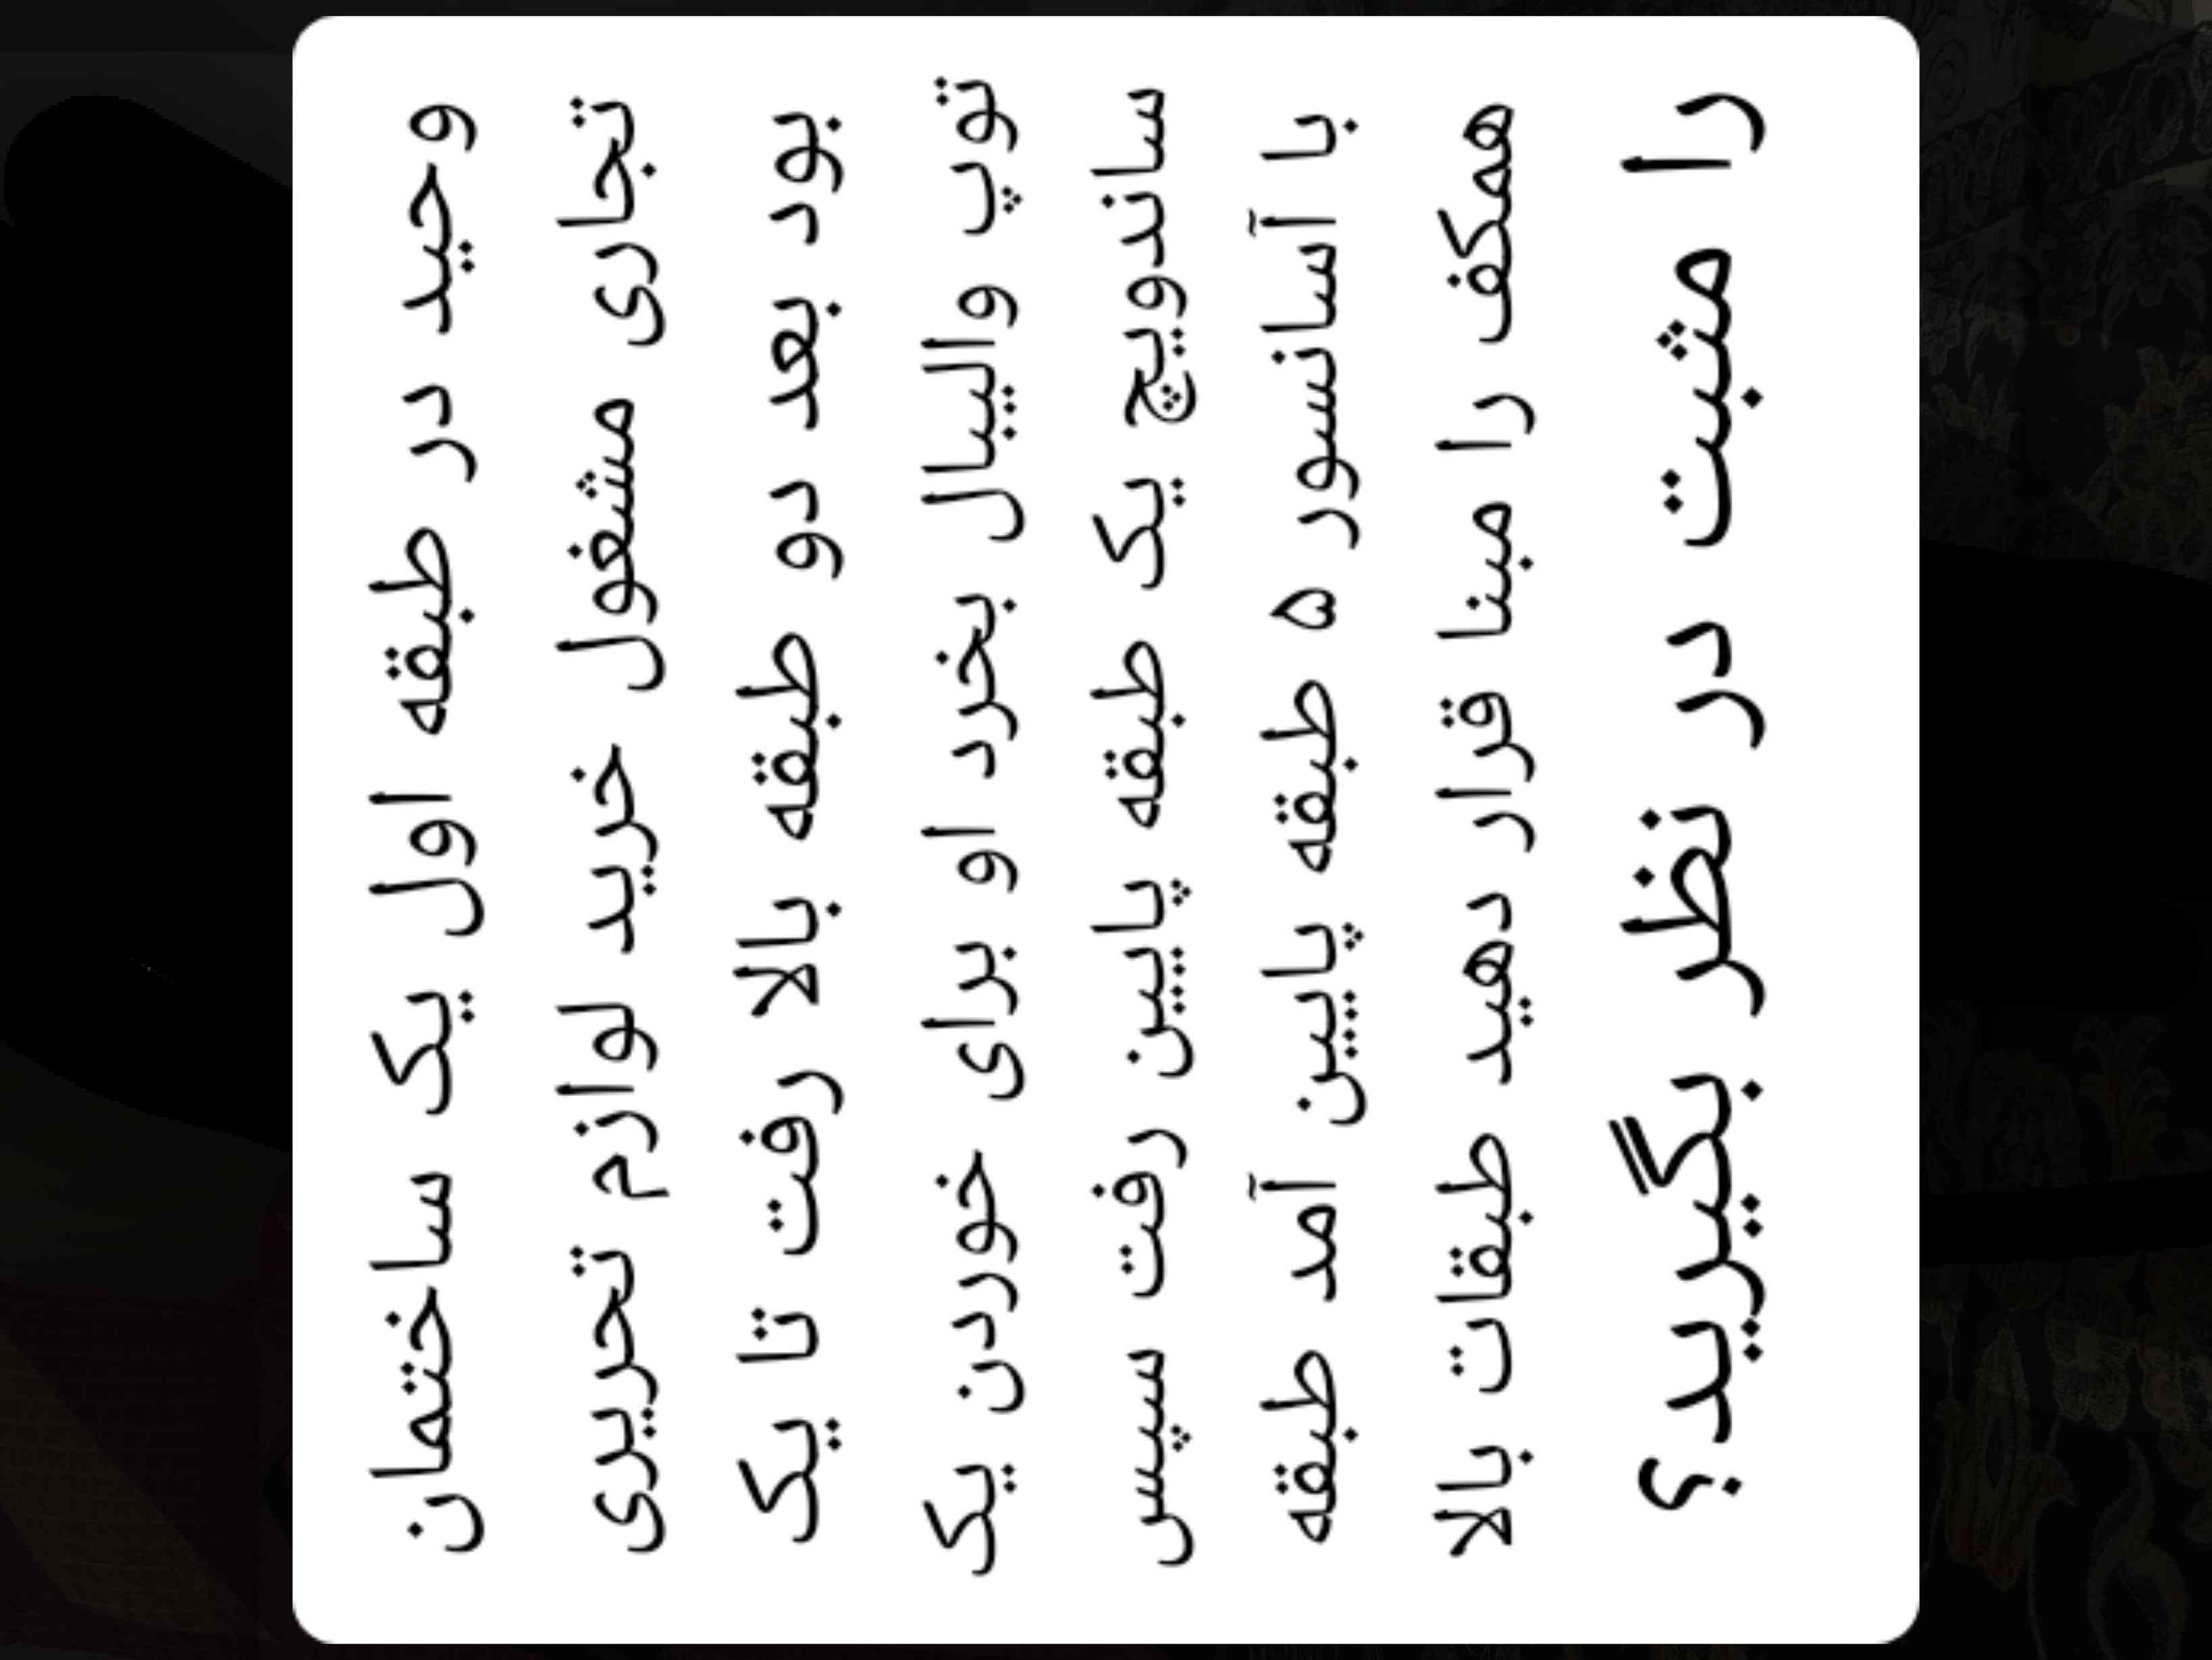 وحید در طبقه اول یک ساختمان
تجاری مشغول خرید لوازم تحریری
بود بعد دو طبقه بالا رفت تا یک
توپ والیبال بخرد او برای خوردن یک
ساندویچ یک طبقه پایین رفت سپس
با آسانسور ۵ طبقه پایین آمد طبقه
همکف را مبنا قرار دهید طبقات بالا
را مثبت در نظر بگیرید؟